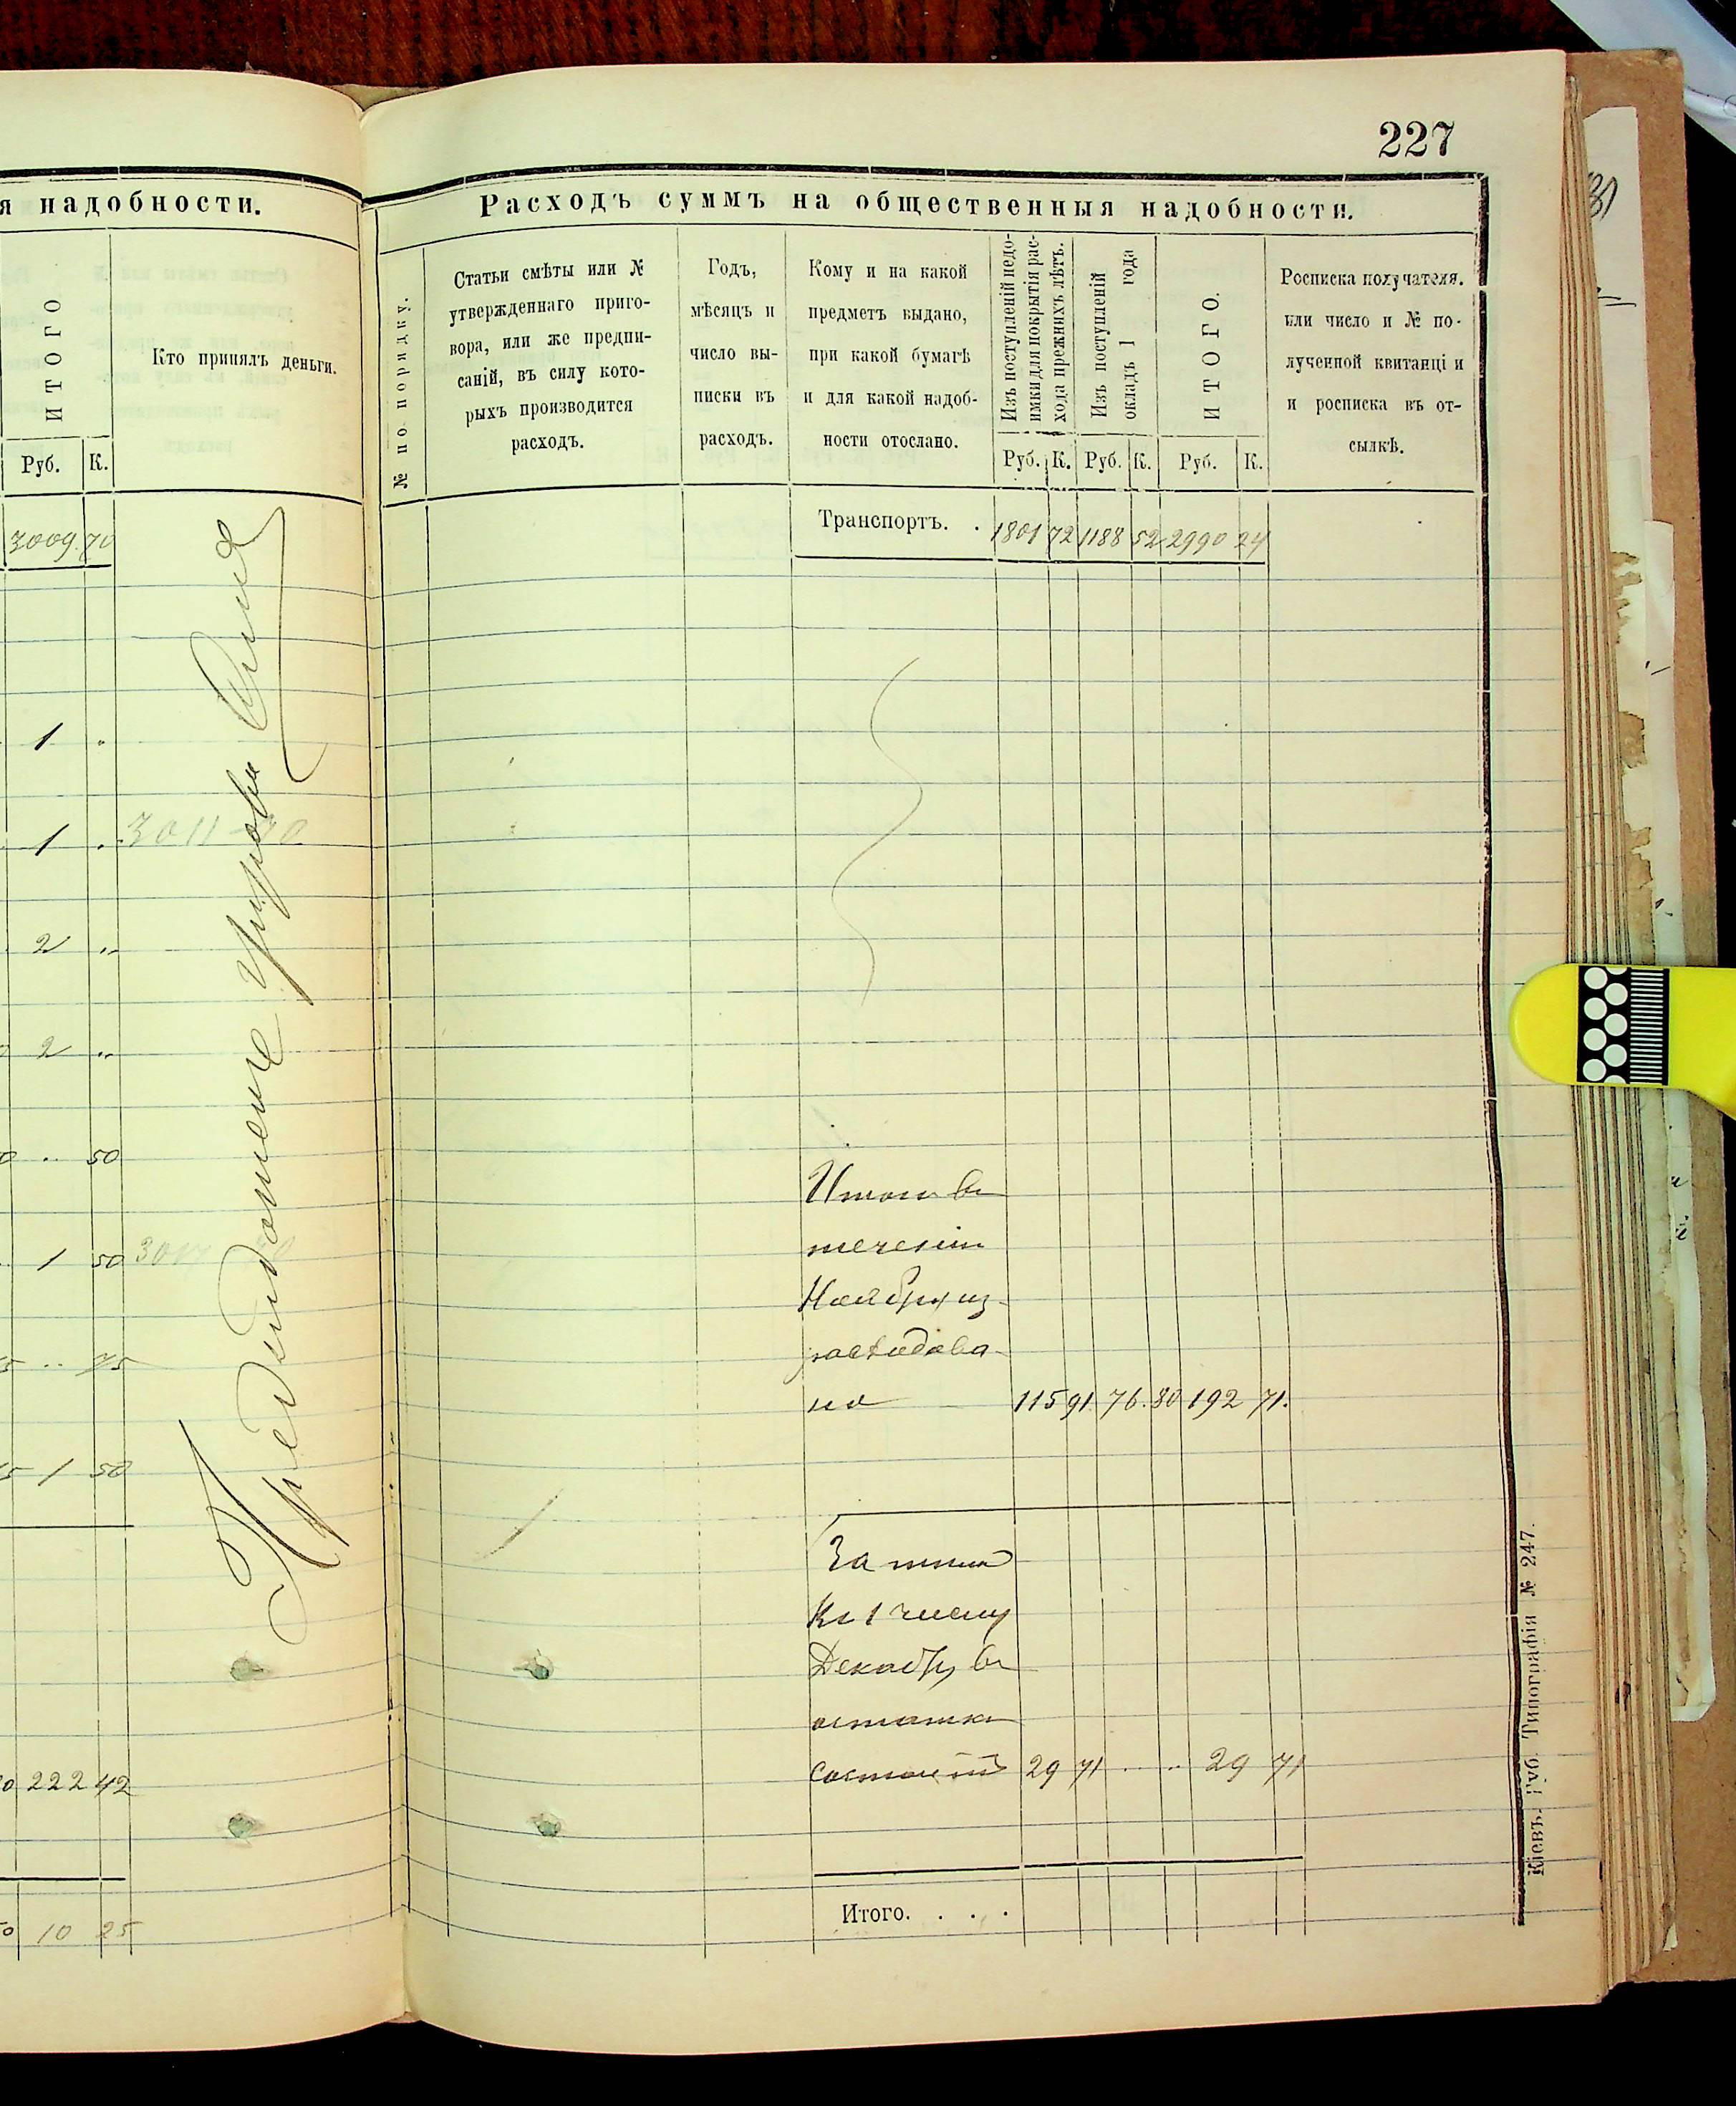 227
я надобности.
ИТОГО
Кто принялъ деньги.
Руб. К.
3009 70
1 .
1 .. 3011-70
2 ..
2 ..
.. 50
1 50
.. 75
1 50
222 42
10 25
Расходъ суммъ на общественныя надобности.
№ по порядку.
Статьи смѣты или №
утвержденнаго приго-
вора, или же предпи-
саній, въ силу кото-
рыхъ производится
расходъ.
Годъ,
мѣсяцъ и
число вы-
писки въ
расходъ.
Кому и на какой
предметъ выдано,
при какой бумагѣ
и для какой надоб-
ности отослано.
Изъ поступленій недо-
имки для покрытія рас-
хода прежнихъ лѣтъ.
Изъ поступленій
окладъ 1 года
ИТОГО.
Росписка получателя.
или число и № по-
лученной квитанці и
и росписка въ от-
сылкѣ.
Руб. К. Руб. К. Руб. К.
Транспортъ. . 1801 72 1188 52 2990 24
Итого въ
теченіи
Ноября из-
расходова-
но 115 91 76 80 192 71.
За тѣмъ
Къ 1 числу
Декабря въ
остатки
состоитъ 29 71 .. .. 29 71
Итого. . . .
Кіевъ. Губ. Типографія № 247.